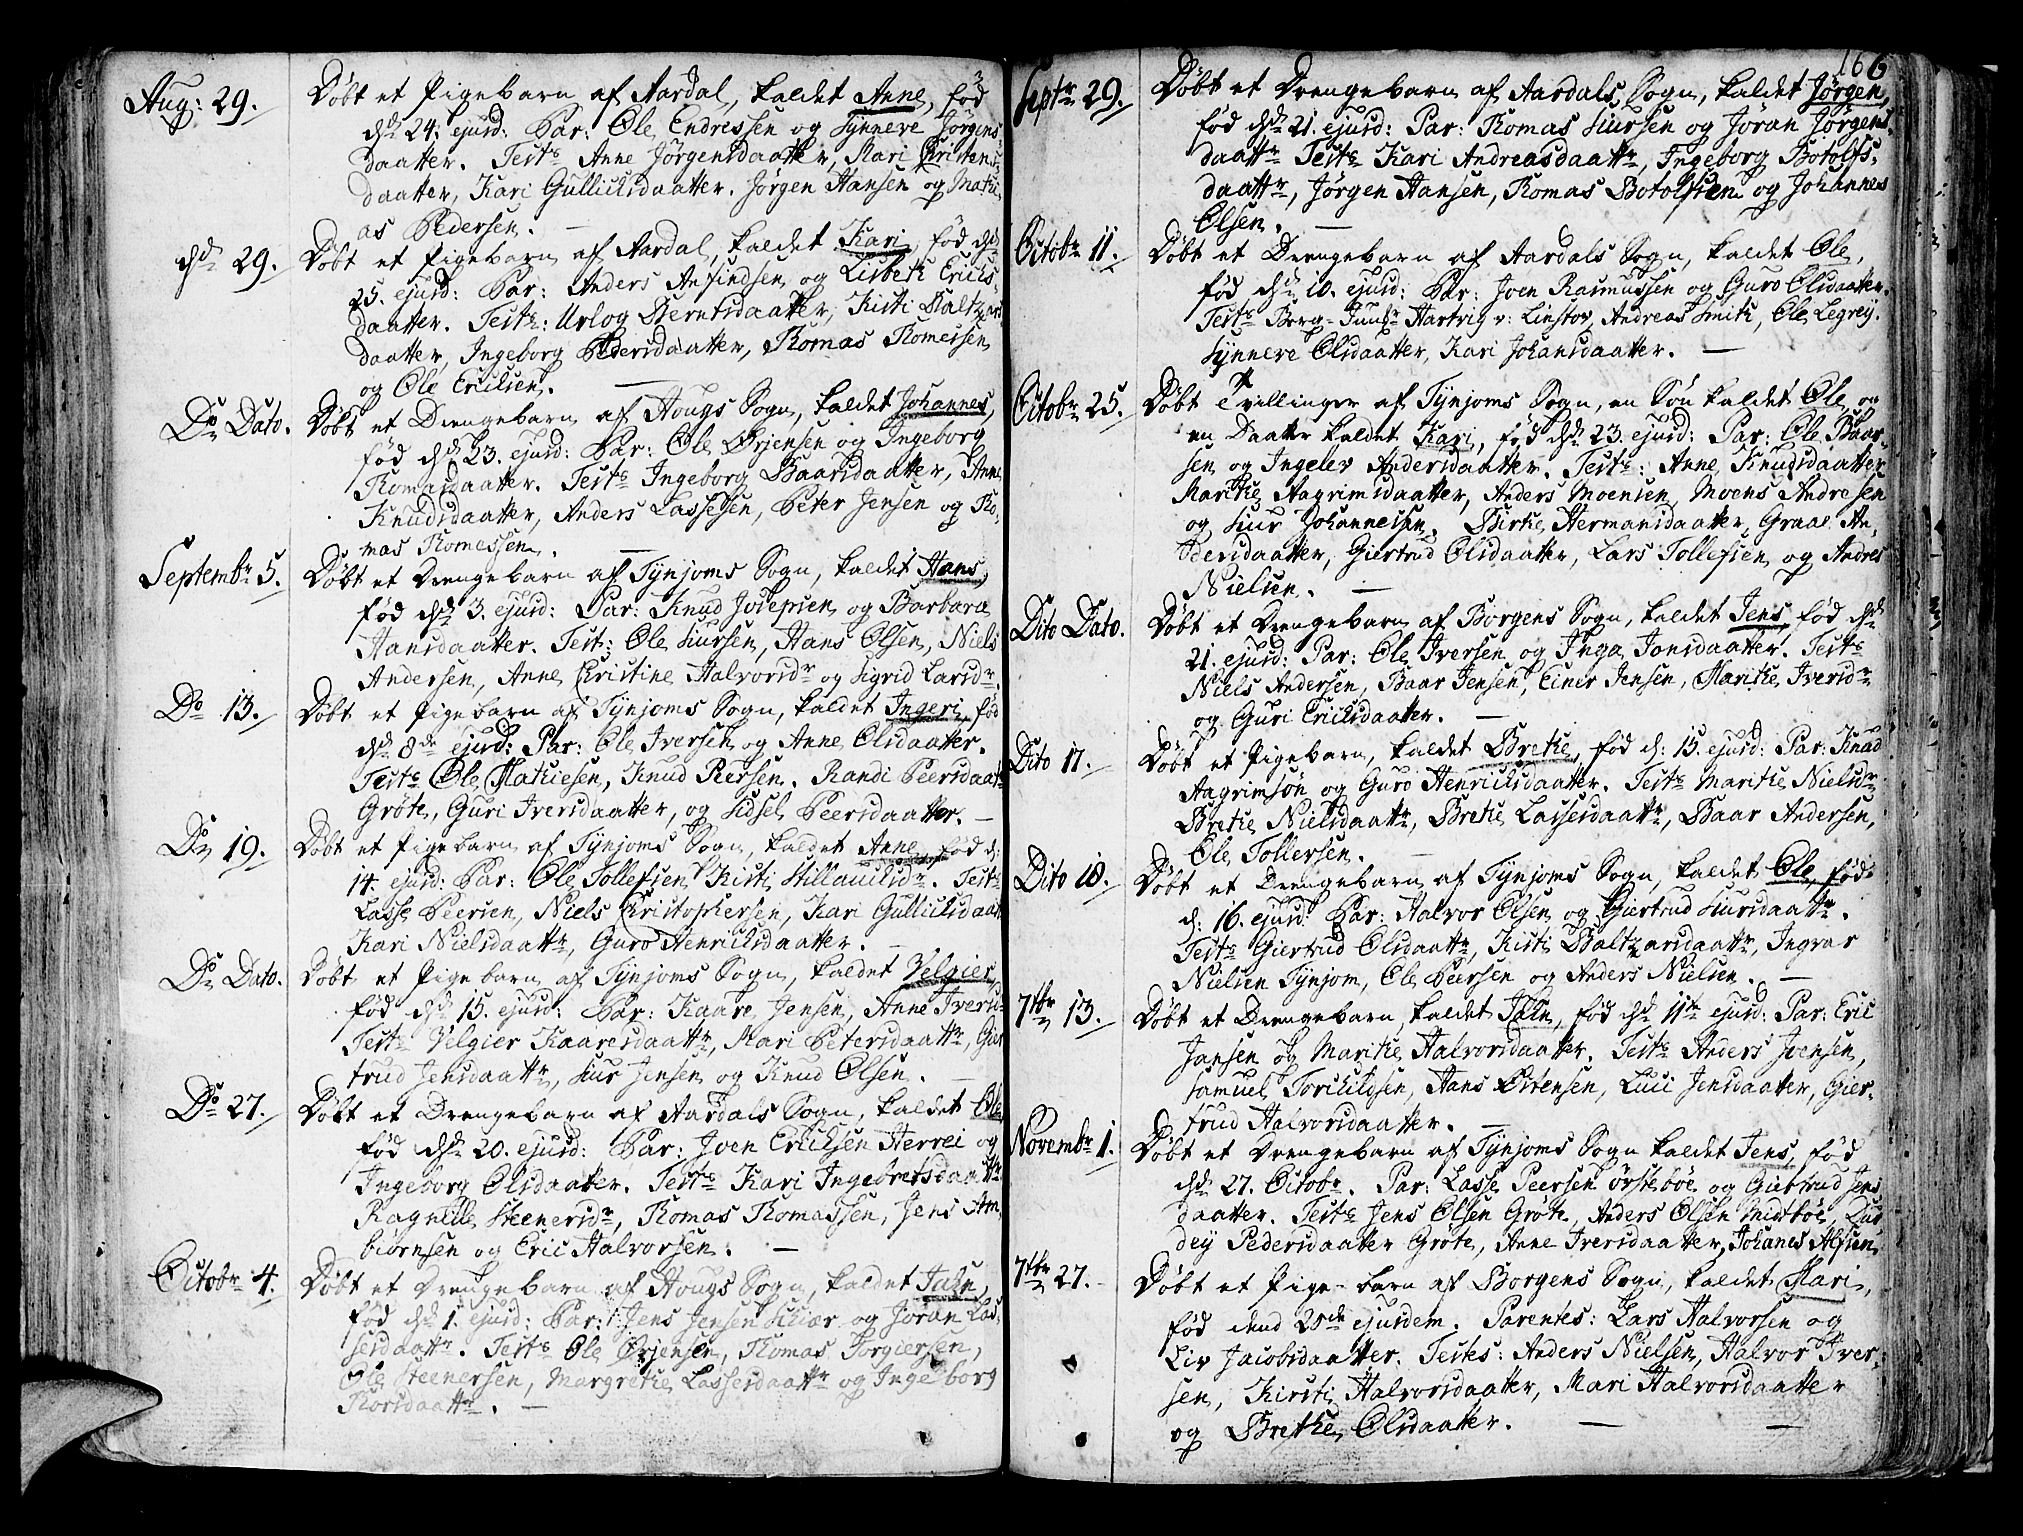 Aug: 29. Döbt et Pigebarn af Aardal, kaldet Anne, fød
dsd 24. ejusd: Par: Ole Endressen og Synneve Jørgens-
daatter. Test: Anne Jørgensdaatter, Kari Cristens-
daatter, Kari Gullichsdaatter. Jørgen Hansen og Mathi-
as Pedersen.
dsd 29. Döbt et Pigebarn af Aardal, kaldet Kari, fød dsd
25. ejusd: Par: Anders Anfindsen og Lisbeth Erichs-
daatter. Test: Berntsdaatter, Kisti Baltzars-
daatter, Ingeborg Pedersdaatter, Thomas Thomessen
og Ole Ericksen.
Do Dato. Döbt et Drengebarn af Hougs Sogn, kaldet Johannes,
fød dsd 23. ejusd: Par: Ole Ørjensen og Ingeborg
Thomasdaatter. Test: Ingeborg Baarsdaatter, Anne
Knudsdaatter, Anders Lassesen, Peter Jensen og Tho-
mas Thomessen.
Septembr 5. Döbt et Drengebarn af Tynjoms Sogn, kaldet Hans,
fød dsd 3. ejusd: Par: Knud Josepsen og Barbara
Hansdaatter. Test: Ole Siursen, Hans Olsen, Niels
Andersen, Anne Cristine Halvorsdr og Sigrid Larsdr.
Do 13. Döbt et Pigebarn af Tynjoms Sogn, kaldet Ingeri, fød
dsd 8de ejusd: Par: Ole Iversen og Anne Olsdaatter.
Test: Ole Mathiesen, Knud Peersen. Randi Peersdaatr
Gröte, Guri Iversdaatter, og Sidsel Peersdaatter.
Do 19. Döbt et Pigebarn af Tynjoms Sogn, kaldet Anne, fød d:
14. ejusd: Par: Ole Tollefsen Kisti Stillaugsdr. Test:
Lasse Peersen, Niels Cristophersen, Kari Gullichsdaatr
Kari Nielsdaattr, Guro Henrichsdaatter.
Do Dato. Döbt et Pigebarn af Tynjoms Sogn, kaldet Velgier,
fød dsd 15. ejusd: Par: Kaare Jensen, Anne Iversd:
Test: Velgier Kaaresdaattr, Mari Petersdaattr, Gier-
trud Jensdaattr, Siur Jensen og Knud Olsen.
Do 27. Döbt et Drengebarn af Aardals Sogn, kaldet Ole
fød dsd 20. ejusd: Par: Joen Ericksen Herrei og
Ingeborg Olsdaatter. Test: Kari Ingebretsdaattr
Ragnilde Steenersdr, Thomas Thomassen, Jens Am-
biørnsen og Eric Halvorsen.
Octobr 4. Döbt et Drengebarn af Hougs Sogn, kaldet Jahn,
fød dsd 1. ejusd: Par: Jens Jensen Skiær og Jöran Las-
sesdaattr. Test: Ole Ørjensen, Thomas Torgiersen,
Ole Steenersen, Margrethe Lassesdaattr og Ingeborg
Thorsdaattr.
166
Septr 29. Döbt et Drengebarn af Aardals Sogn, kaldet Jørgen,
fød dsd 21. ejusd: Par: Thomas Siursen og Jöran Jørgens-
daattr Test: Kari Andreasdaattr, Ingeborg Botolfs-
daattr, Jørgen Hansen, Thomas Botolfsen og Johannes
Olsen.
Octobr 11. Döbt et Drengebarn af Aardals Sogn, kaldet Ole,
fød dsd 10. ejusd: Par: Joen Rasmussen og Guro Olsdaatter.
Test: Berg-Juncr Hartvig v: Linstov, Andreas Smith, Ole Legrey.
Synneve Olsdaatter, Kari Johansdaatter.
Octobr 25. Döbt Tvillinger af Tynjoms Sogn, en Søn kaldet Ole, og
en Daattr kaldet Kari, fød dsd 23. ejusd: Par: Ole Baar-
sen og Ingelev Andersdaatter. Test: Anne Knudsdaatter
Marithe Aagrimsdaatter, Anders Moensen, Moens Andresen
og Siur Johannesen. Birthe Hermansdaatter, Graae An-
dersdaatter, Giertrud Olsdaatter, Lars Tollefsen og Andres
Nielsen.
Dito Dato. Döbt et Drengebarn af Borgens Sogn, kaldet Jens, fød dsd
21. ejusd: Par: Ole Iversen og Inga Jonsdaatter. Test:
Niels Andersen, Baar Jensen, Einer Jensen, Marithe Iversdr
og Guri Ericksdaatter.
Dito 17. Döbt et Pigebarn, kaldet Brethe, fød d: 15. ejusd: Par: Knud
Aagrimsøn og Guro Henrichsdaatter. Test: Marithe Nielsdr
Brethe Nielsdaattr, Brethe Lassesdaattr, Baar Andersen,
Ole Tollersen.
Dito 18. Döbt et Drengebarn af Tynjoms Sogn, kaldet Ole, fød
d: 16. ejusd: Par: Halvor Olsen og Giertrud Siursdaattr.
Test: Giertrud Olsdaattr, Kisti Baltzarsdaattr, Ingvar
Nielsen Tynjom, Ole Peersen og Anders Nielsen.
7br 13. Döbt et Drengebarn, kaldet Jahn, fød dsd 11te ejusd: Par: Eric
Jansen og Marithe Halvorsdaatter. Test: Anders Joensen,
Samuel Torchildsen, Hans Østensen, Luci Jensdaatter, Gier-
trud Halvorsdaatter.
Novembr 1. Döbt et Drengebarn af Tynjoms Sogn kaldet Jens, fød
dsd 27. Octobr. Par: Lasse Peersen Ørstebøe og Giertrud Jens
daatter. Test: Jens Olsen Grøte, Anders Olsen Midtbøe, Dor-
dey Pedersdaatter Grøte, Anne Iversdaatter, Johanes Alfsen.
7br 27. Döbt et Pige-barn af Borgens Sogn, kaldet Mari,
fød dend 25de ejusdem. Parentes: Lars Halvorsen og
Liv Jacobsdaatter. Testes: Anders Nielsen, Halvor Iver-
sen, Kirsti Halvorsdaatter, Mari Halvorsdaatter
og Brethe Olsdaatter.